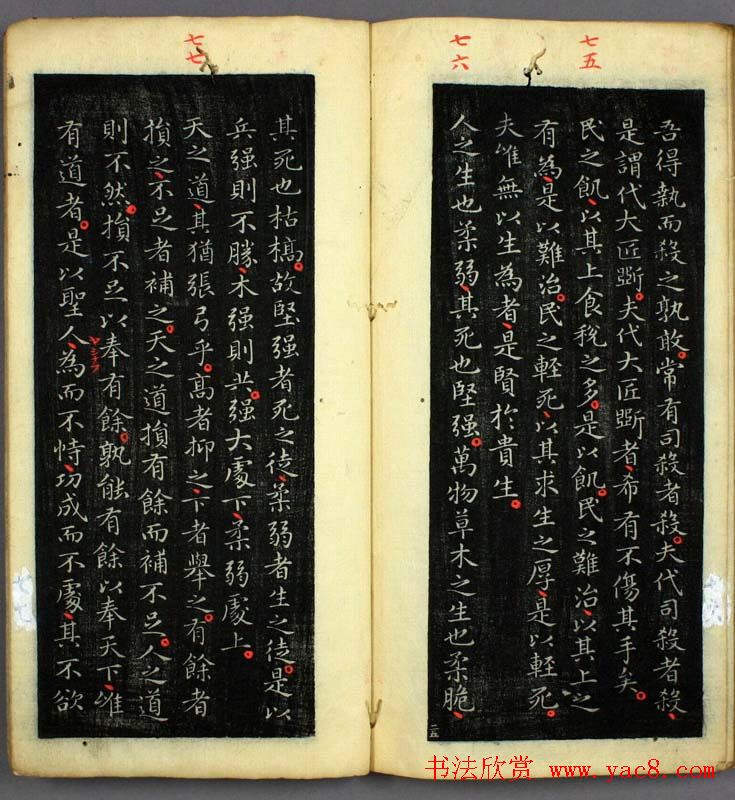 七五
七六
吾得執而殺之孰敢常有司殺者殺夫代司殺者殺
是謂代大匠斲夫代大匠斲者希有不傷其手矣
民之飢以其上食稅之多是以飢民之難治以其上之
有為是以難治民之輕死以其求生之厚是以輕死
夫唯無以生為者是賢於貴生
人之生也柔弱其死也堅强萬物草木之生也柔脆
二五
七七
其死也枯槁故堅强者死之徒柔弱者生之徒是以
兵强則不勝木强則共强大處下柔弱處上
天之道其猶張弓乎高者抑之下者舉之有餘者
損之不足者補之天之道損有餘而補不足人之道
則不然損不足以奉有餘孰能有餘以奉天下唯
有道者是以聖人為而不恃功成而不處其不欲
书法欣赏 www.yac8.com